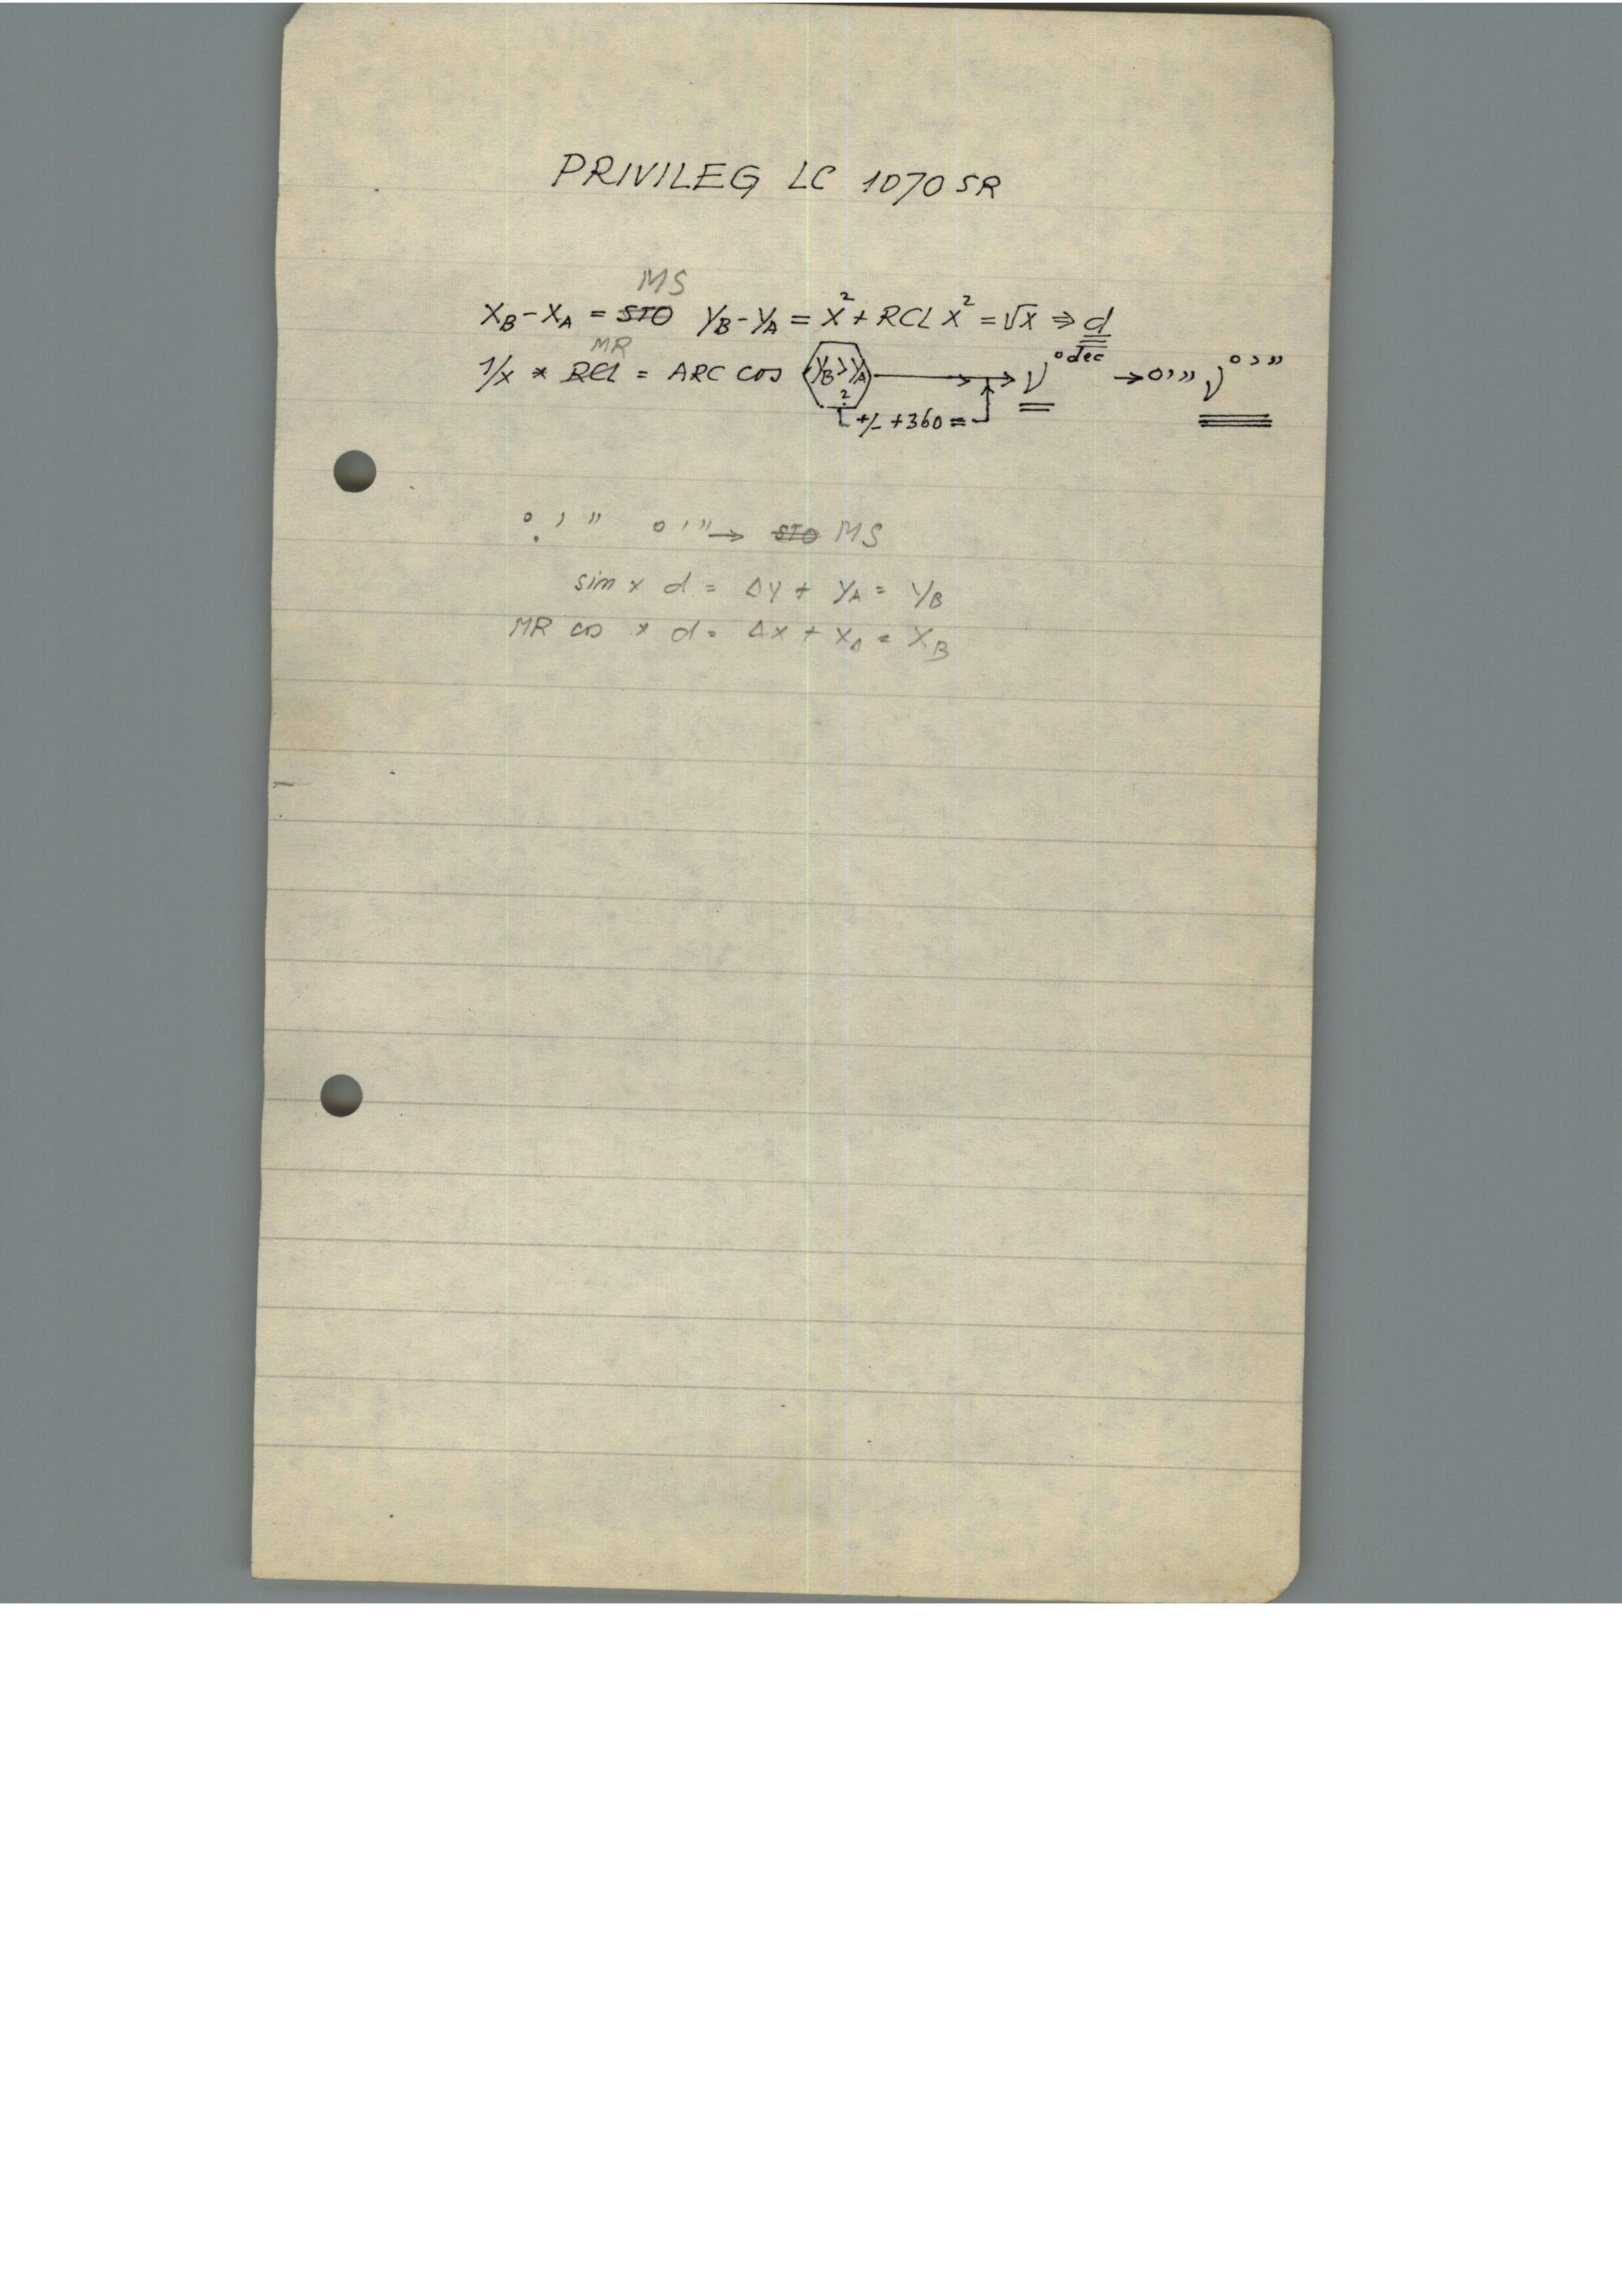 PRIVILEG LC 1070 SR
MS
X_B - X_A = STO Y_B - Y_A = X² + RCL X² = √X ⇒ d
MR
1/X * RCL = ARC COS Y_B > Y_A ? → ν °dec → o ' " ν ° ' "
+/- +360 =
° ' " o ' " → STO MS
sin x d = ΔY + Y_A = Y_B
MR cos x d = ΔX + X_A = X_B